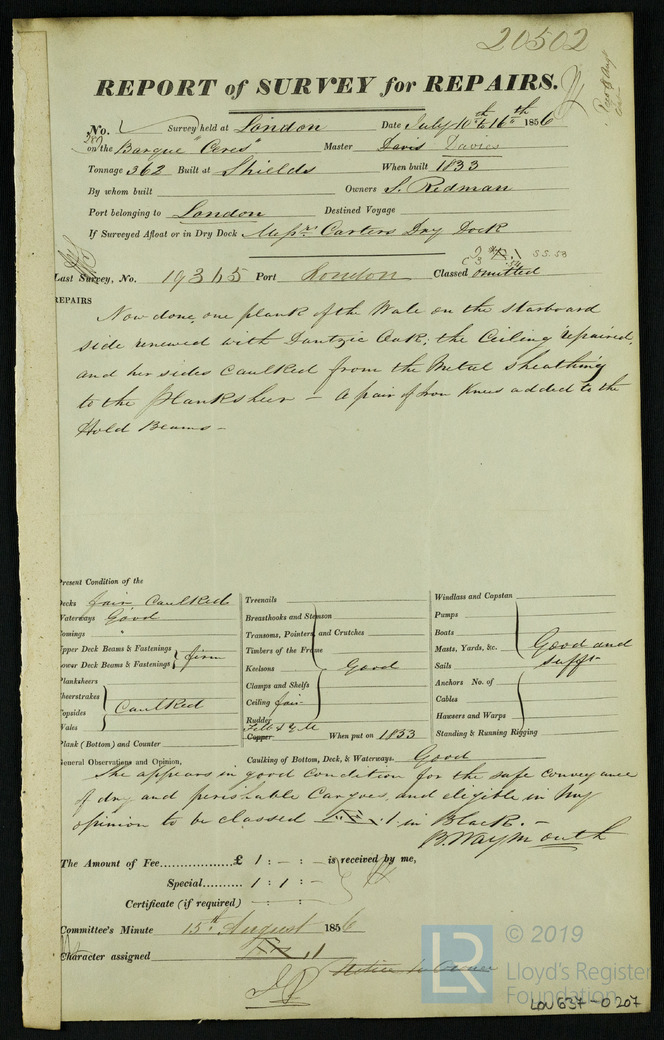 20502
REPORT of SURVEY for REPAIRS.
No. Survey held at London Date July 10th to 16th 1856
on the Barque "Ceres" Master Davis Davies
Tonnage 362 Built at Shields When built 1833
By whom built Owners S. Redman
Port belonging to London Destined Voyage
If Surveyed Afloat or in Dry Dock Messrs. Carters Dry Dock
Last Survey, No. 19365 Port London Classed omitted
REPAIRS
Now done, one plank of the Wale on the starboard
side renewed with Dantzic Oak; the Ceiling repaired,
and her sides caulked from the Metal sheathing
to the Planksheer – A pair of Iron Knees added to the
Hold Beams –
Present Condition of the
Decks fair Caulked
Waterways Good
Comings "
Upper Deck Beams & Fastenings
Lower Deck Beams & Fastenings firm
Planksheers
Sheerstrakes
Topsides Caulked
Wales
Plank (Bottom) and Counter
Treenails
Breasthooks and Stemson
Transoms, Pointers, and Crutches
Timbers of the Frame
Keelsons Good
Clamps and Shelfs
Ceiling fair
Rudder
Felt & Y.M.
Copper When put on 1833
Caulking of Bottom, Deck, & Waterways. Good
Windlass and Capstan
Pumps
Boats
Masts, Yards, &c. Good and
Sails sufft
Anchors No. of
Cables
Hawsers and Warps
Standing & Running Rigging
General Observations and Opinion,
She appears in good condition for the safe conveyance
of dry and perishable Cargoes, and eligible in my
opinion to be classed Æ 1 in Black. –
B. Waymouth
The Amount of Fee......... £ 1 : – : – is received by me,
Special.......... 1 : 1 : –
Certificate (if required) – : – : –
Committee's Minute 15th August 1856
Character assigned Æ 1
Notice to Owner
LR © 2019
Lloyd's Register
Foundation
LON637-0207